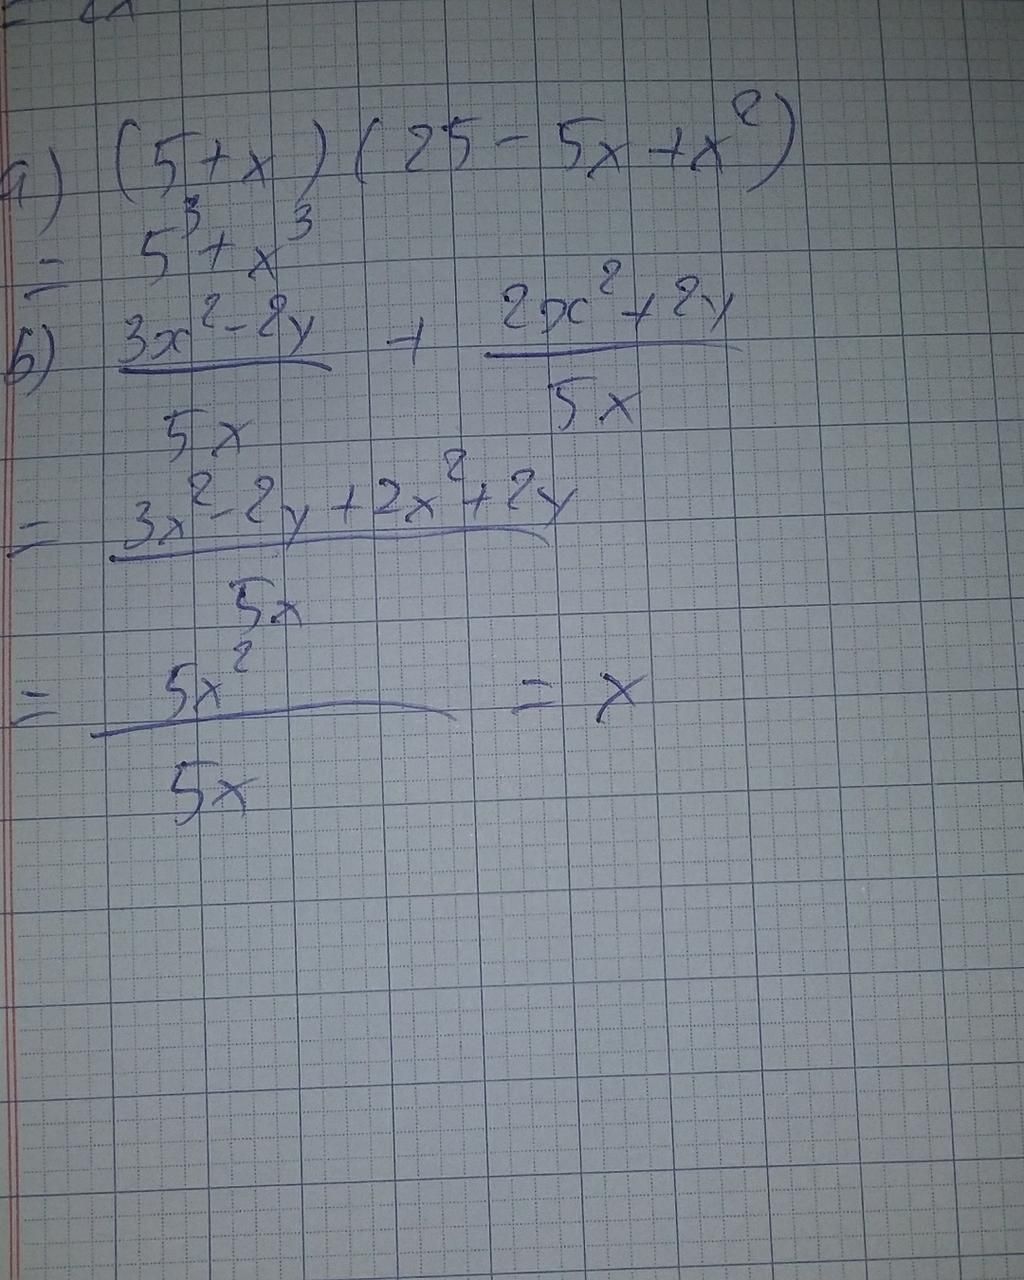 a) (5+x)(25-5x+x²)
= 5³+x³
b) \frac{3x²-2y}{5x} + \frac{2x²+2y}{5x}
= \frac{3x²-2y+2x²+2y}{5x}
= \frac{5x²}{5x} = x